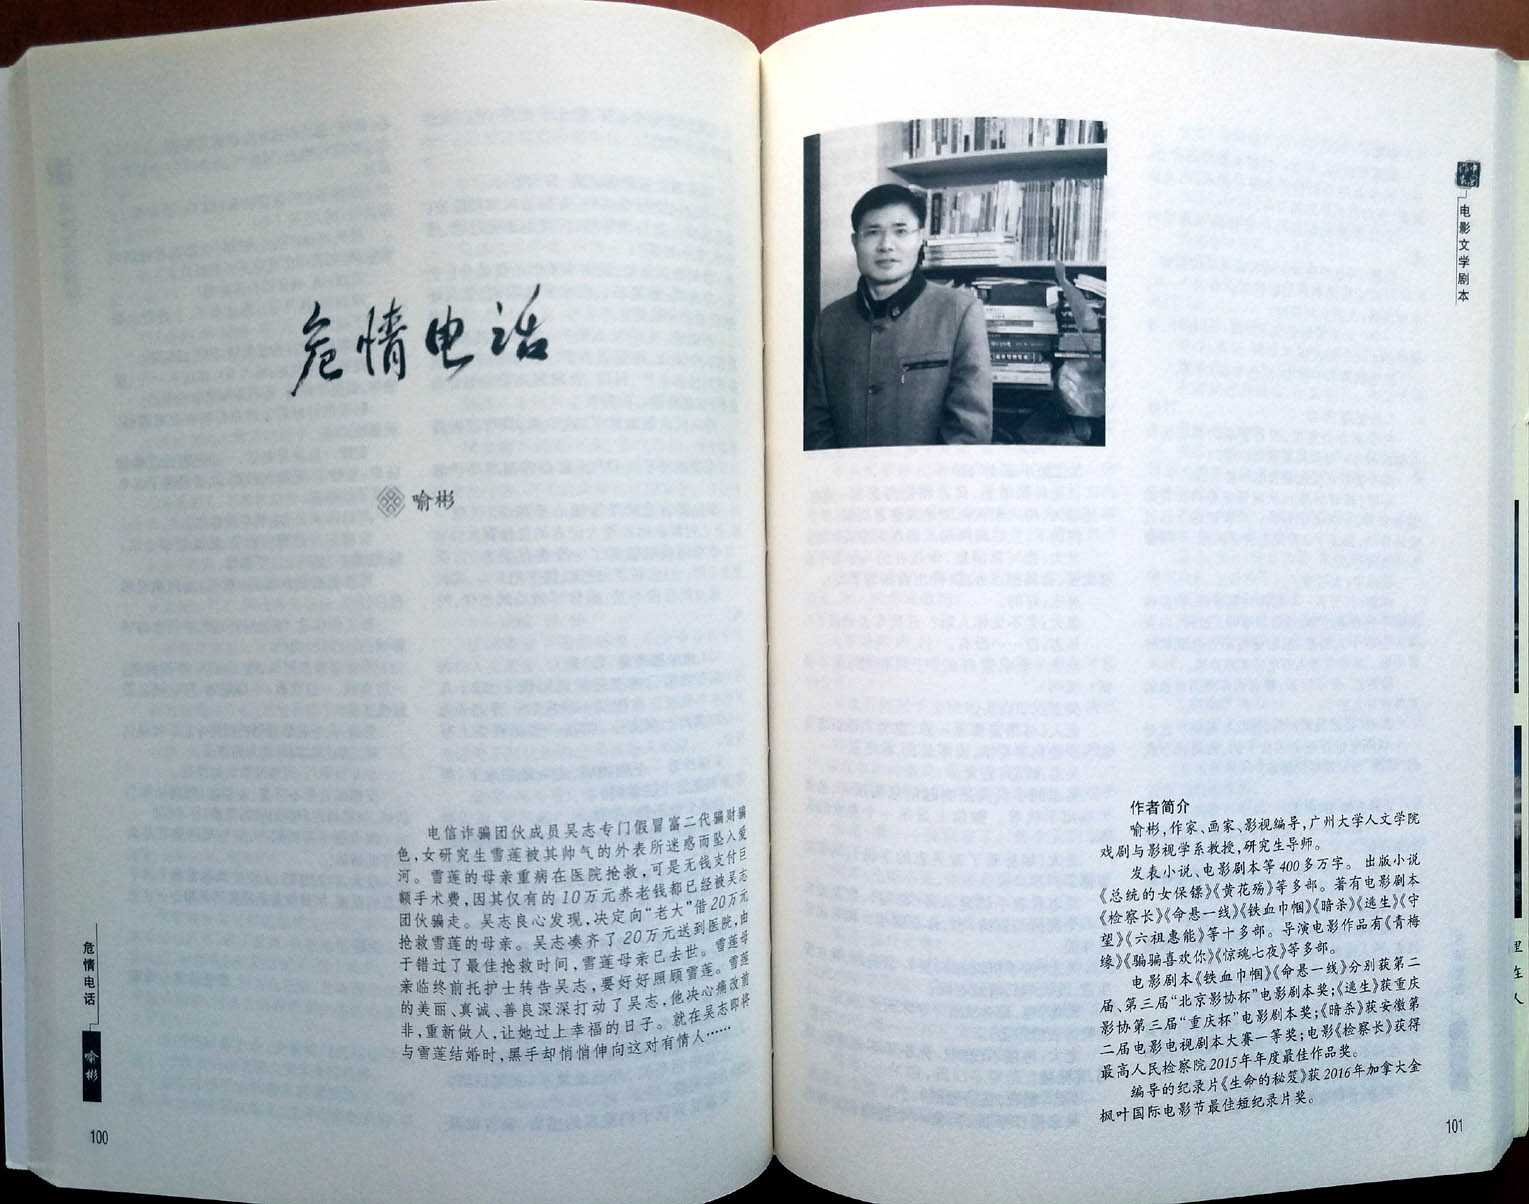 危情电话
喻彬
电信诈骗团伙成员吴志专门假冒富二代骗财骗
色,女研究生雪莲被其帅气的外表所迷惑而坠入爱
河。雪莲的母亲重病在医院抢救,可是无钱支付巨
额手术费,因其仅有的10万元养老钱都已经被吴志
团伙骗走。吴志良心发现,决定向“老大”借20万元
抢救雪莲的母亲。吴志凑齐了20万元送到医院,由
于错过了最佳抢救时间,雪莲母亲已去世。雪莲母
亲临终前托护士转告吴志,要好好照顾雪莲。雪莲
的美丽、真诚、善良深深打动了吴志,他决心痛改前
非,重新做人,让她过上幸福的日子。就在吴志即将
与雪莲结婚时,黑手却悄悄伸向这对有情人……
危情电话
喻彬
100
电影文学剧本
作者简介
喻彬,作家、画家、影视编导,广州大学人文学院
戏剧与影视学系教授,研究生导师。
发表小说、电影剧本等400多万字。出版小说
《总统的女保镖》《黄花殇》等多部。著有电影剧本
《检察长》《命悬一线》《铁血巾帼》《暗杀》《逃生》《守
望》《六祖惠能》等十多部。导演电影作品有《青梅
缘》《骗骗喜欢你》《惊魂七夜》等多部。
电影剧本《铁血巾帼》《命悬一线》分别获第二
届、第三届“北京影协杯”电影剧本奖;《逃生》获重庆
影协第三届“重庆杯”电影剧本奖;《暗杀》获安徽第
二届电影电视剧本大赛一等奖;电影《检察长》获得
最高人民检察院2015年年度最佳作品奖。
编导的纪录片《生命的秘笈》获2016年加拿大金
枫叶国际电影节最佳短纪录片奖。
101